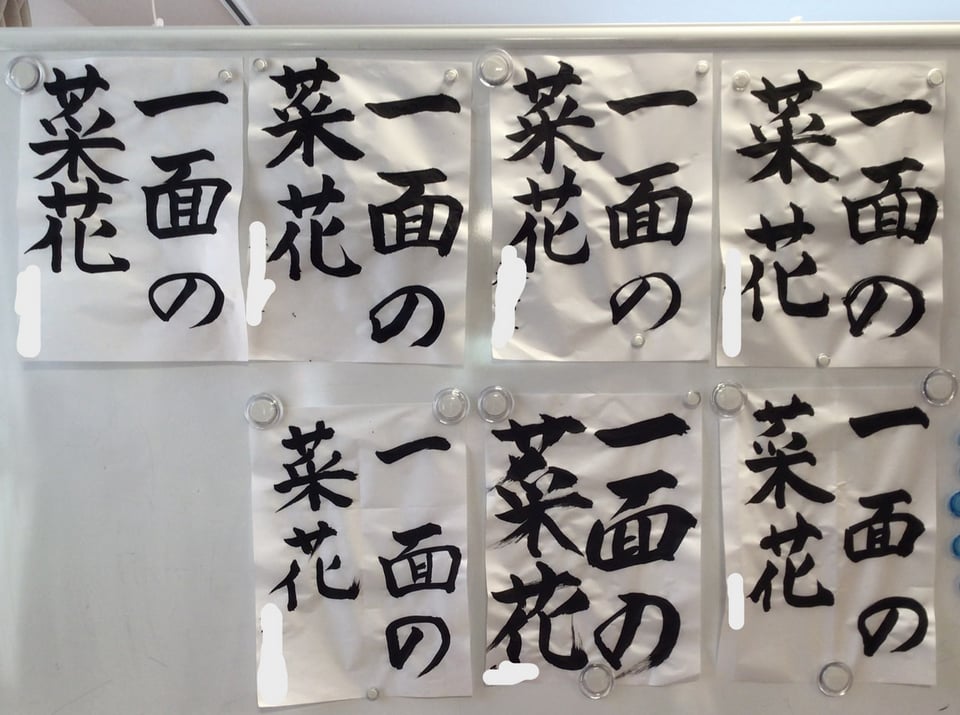 一面の
菜花
一面の
菜花
一面の
菜花
一面の
菜花
一面の
菜花
一面の
菜花
一面の
菜花